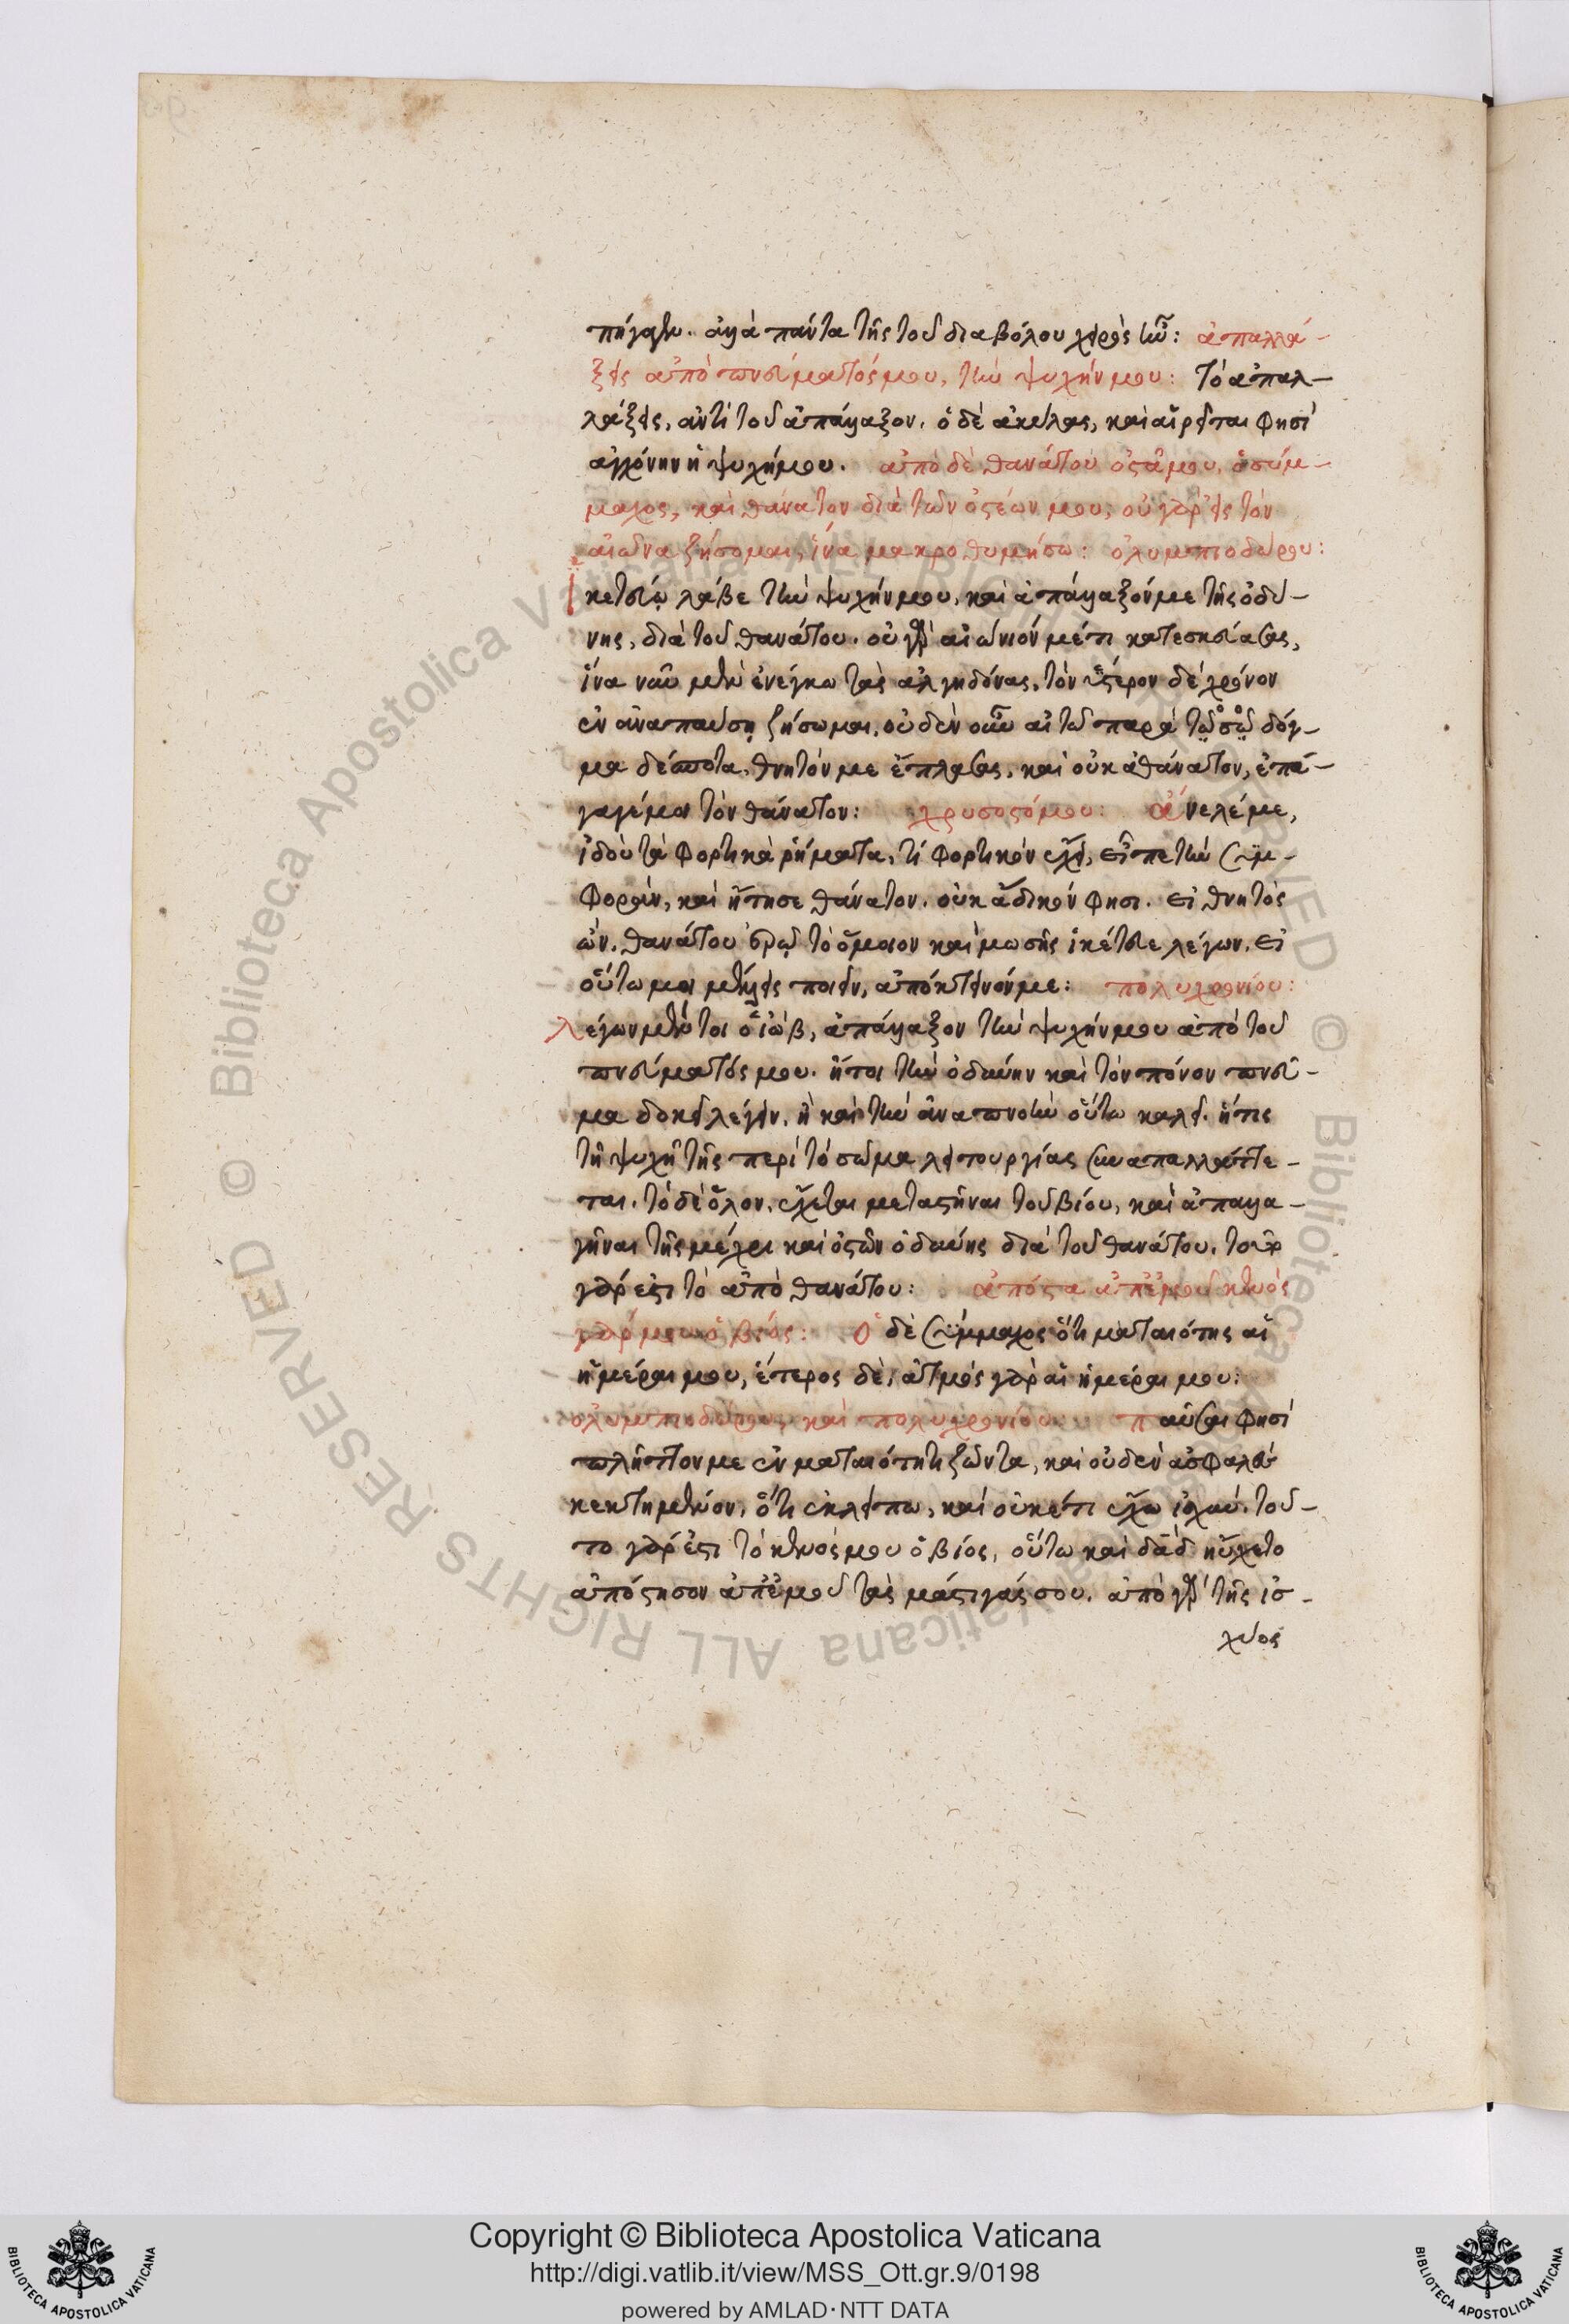 πήγαγεν. ἀλλὰ πάντα τῆς τοῦ διαβόλου χειρὸς ἦν: ἀπαλλά-
ξεις ἀπὸ πνεύματός μου, τὴν ψυχήν μου: τὸ ἀπαλ-
λάξεις, ἀντὶ τοῦ ἀπάλλαξον. ὁ δὲ ἀκύλας, καὶ αἱρεῖται φησὶ
ἀγχόνην ἡ ψυχή μου. ἀπὸ δὲ θανάτου ὀστᾶ μου, ὁ σύμ-
μαχος, καὶ θάνατον διὰ τῶν ὀστέων μου, οὐ γὰρ εἰς τὸν
αἰῶνα ζήσομαι, ἵνα μακροθυμήσω: ὀλυμπιοδώρου:
ἱκετεύω λάβε τὴν ψυχήν μου, καὶ ἀπάλλαξόν με τῆς ὀδύ-
νης, διὰ τοῦ θανάτου. οὐ γὰρ αἰώνιόν μέ τι κατεσκεύασας,
ἵνα νῦν μὲν ἐνέγκω τὰς ἀλγηδόνας, τὸν ὕστερον δὲ χρόνον
ἐν ἀναπαύσῃ ζήσωμαι. οὐδὲν οὖν αἰτῶ παρὰ τὸ σὸν δόγ-
μα δέσποτα. θνητόν με ἔπλασας, καὶ οὐκ ἀθάνατον, ἐπά-
γαγέ μοι τὸν θάνατον: χρυσοστόμου: ἄνελέ με,
ἰδοὺ τὰ φορτικὰ ῥήματα. τί φορτικὸν ἔχει, εἶπε τὴν συμ-
φορὰν, καὶ ᾔτησε θάνατον. οὐκ ἄδικόν φησι. εἰ θνητὸς
ὢν, θανάτου ἐρῶ τὸ ὅμοιον καὶ μωσῆς ἱκέτευε λέγων. εἰ
οὕτω μοι μέλλεις ποιεῖν, ἀπόκτεινόν με: πολυχρονίου:
λέγων μέντοι ὁ ἰὼβ, ἀπάλλαξον τὴν ψυχήν μου ἀπὸ τοῦ
πνεύματός μου. ἤτοι τὴν ὀδύνην καὶ τὸν πόνον πνεῦ-
μα δοκεῖ λέγειν. ἢ καὶ τὴν ἀναπνοὴν οὕτω καλεῖ. ἥτις
τῇ ψυχῇ τῆς περὶ τὸ σῶμα λειτουργίας συναπαλλάττε-
ται. τὸ δὲ ὅλον, εὔχεται μεταστῆναι τοῦ βίου, καὶ ἀπαλλα-
γῆναι τῆς μέχρι καὶ ὀστῶν ὀδύνης διὰ τοῦ θανάτου. τοῦτο
γάρ ἐστι τὸ ἀπὸ θανάτου: ἀπόστα ἀπ' ἐμοῦ κενὸς
γάρ μου ὁ βίος: ὁ δὲ σύμμαχος ὅτι ματαιότης αἱ
ἡμέραι μου, ἕτερος δὲ, ἀτμὸς γὰρ αἱ ἡμέραι μου:
ὀλυμπιοδώρου, καὶ πολυχρονίου: παῦσαι φησὶ
πλήττον με ἐν ματαιότητι ζῶντα, καὶ οὐδὲν ἀσφαλὲς
κεκτημένον, ὅτι ἐκλείπω, καὶ οὐκέτι ἔχω ἰσχύν. τοῦ-
το γάρ ἐστι τὸ κενός μου ὁ βίος, οὕτω καὶ δᾱδ ηὔχετο
ἀπόστησον ἀπ' ἐμοῦ τὰς μάστιγάς σου. ἀπὸ γὰρ τῆς ἰσ-
χύος